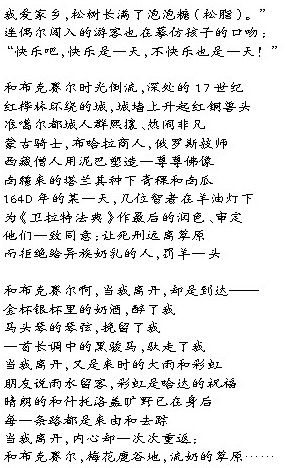 我爱家乡，松树长满了泡泡糖（松脂）。”
连偶尔闯入的游客也在摹仿孩子的口吻：
“快乐吧，快乐是一天，不快乐也是一天！”
和布克赛尔时光倒流，深处的17世纪
红桦林环绕的城，城墙上升起红铜兽头
准噶尔都城人群熙攘、热闹非凡
蒙古骑士，布哈拉商人，俄罗斯技师
西藏僧人用泥巴塑造一尊尊佛像
南疆来的塔兰其种下青稞和南瓜
1640年的某一天，几位智者在羊油灯下
为《卫拉特法典》作最后的润色、审定
他们一致同意：让死刑远离草原
而拒绝给异族奶乳的人，罚羊一头
和布克赛尔啊，当我离开，却是到达——
金杯银杯里的奶酒，醉了我
马头琴的琴弦，挽留了我
一首长调中的黑骏马，驮走了我
当我离开，又是来时的大雨和彩虹
朋友说雨水留客，彩虹是哈达的祝福
晴朗的和什托洛盖旷野已在身后
每一条路都是来由和去踪
当我离开，内心却一次次重返：
和布克赛尔，梅花鹿谷地，流奶的草原……